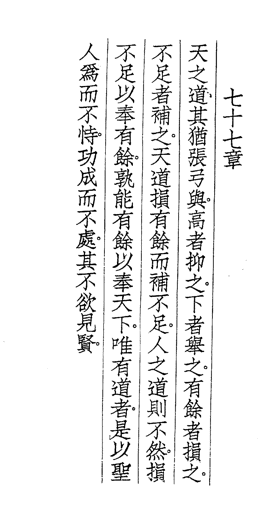 七十七章
天之道、其猶張弓與。高者抑之。下者舉之。有餘者損之。
不足者補之。天道損有餘而補不足。人之道則不然。損
不足以奉有餘。孰能有餘以奉天下。唯有道者。是以聖
人爲而不恃。功成而不處。其不欲見賢。